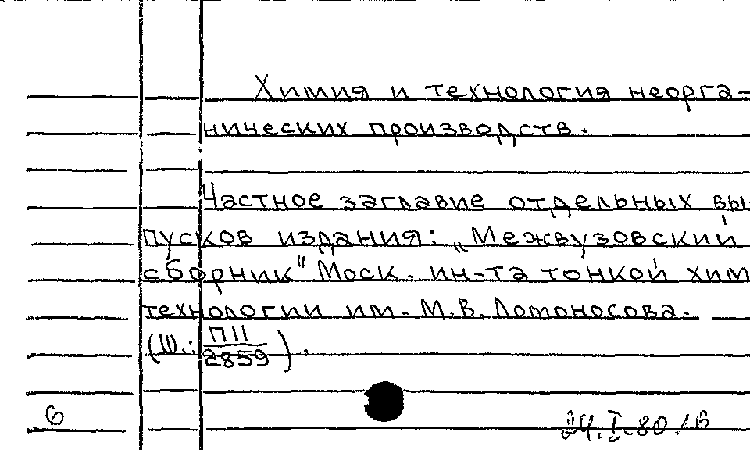 Химия и технология неорга-
нических производств.
Частное заглавие отдельных вы-
пусков издания: „Межвузовский
сборник" Моск. ин-та тонкой хим
технологии им. М.В. Ломоносова.
(Ш.: П11
2859).
6
24.I.80